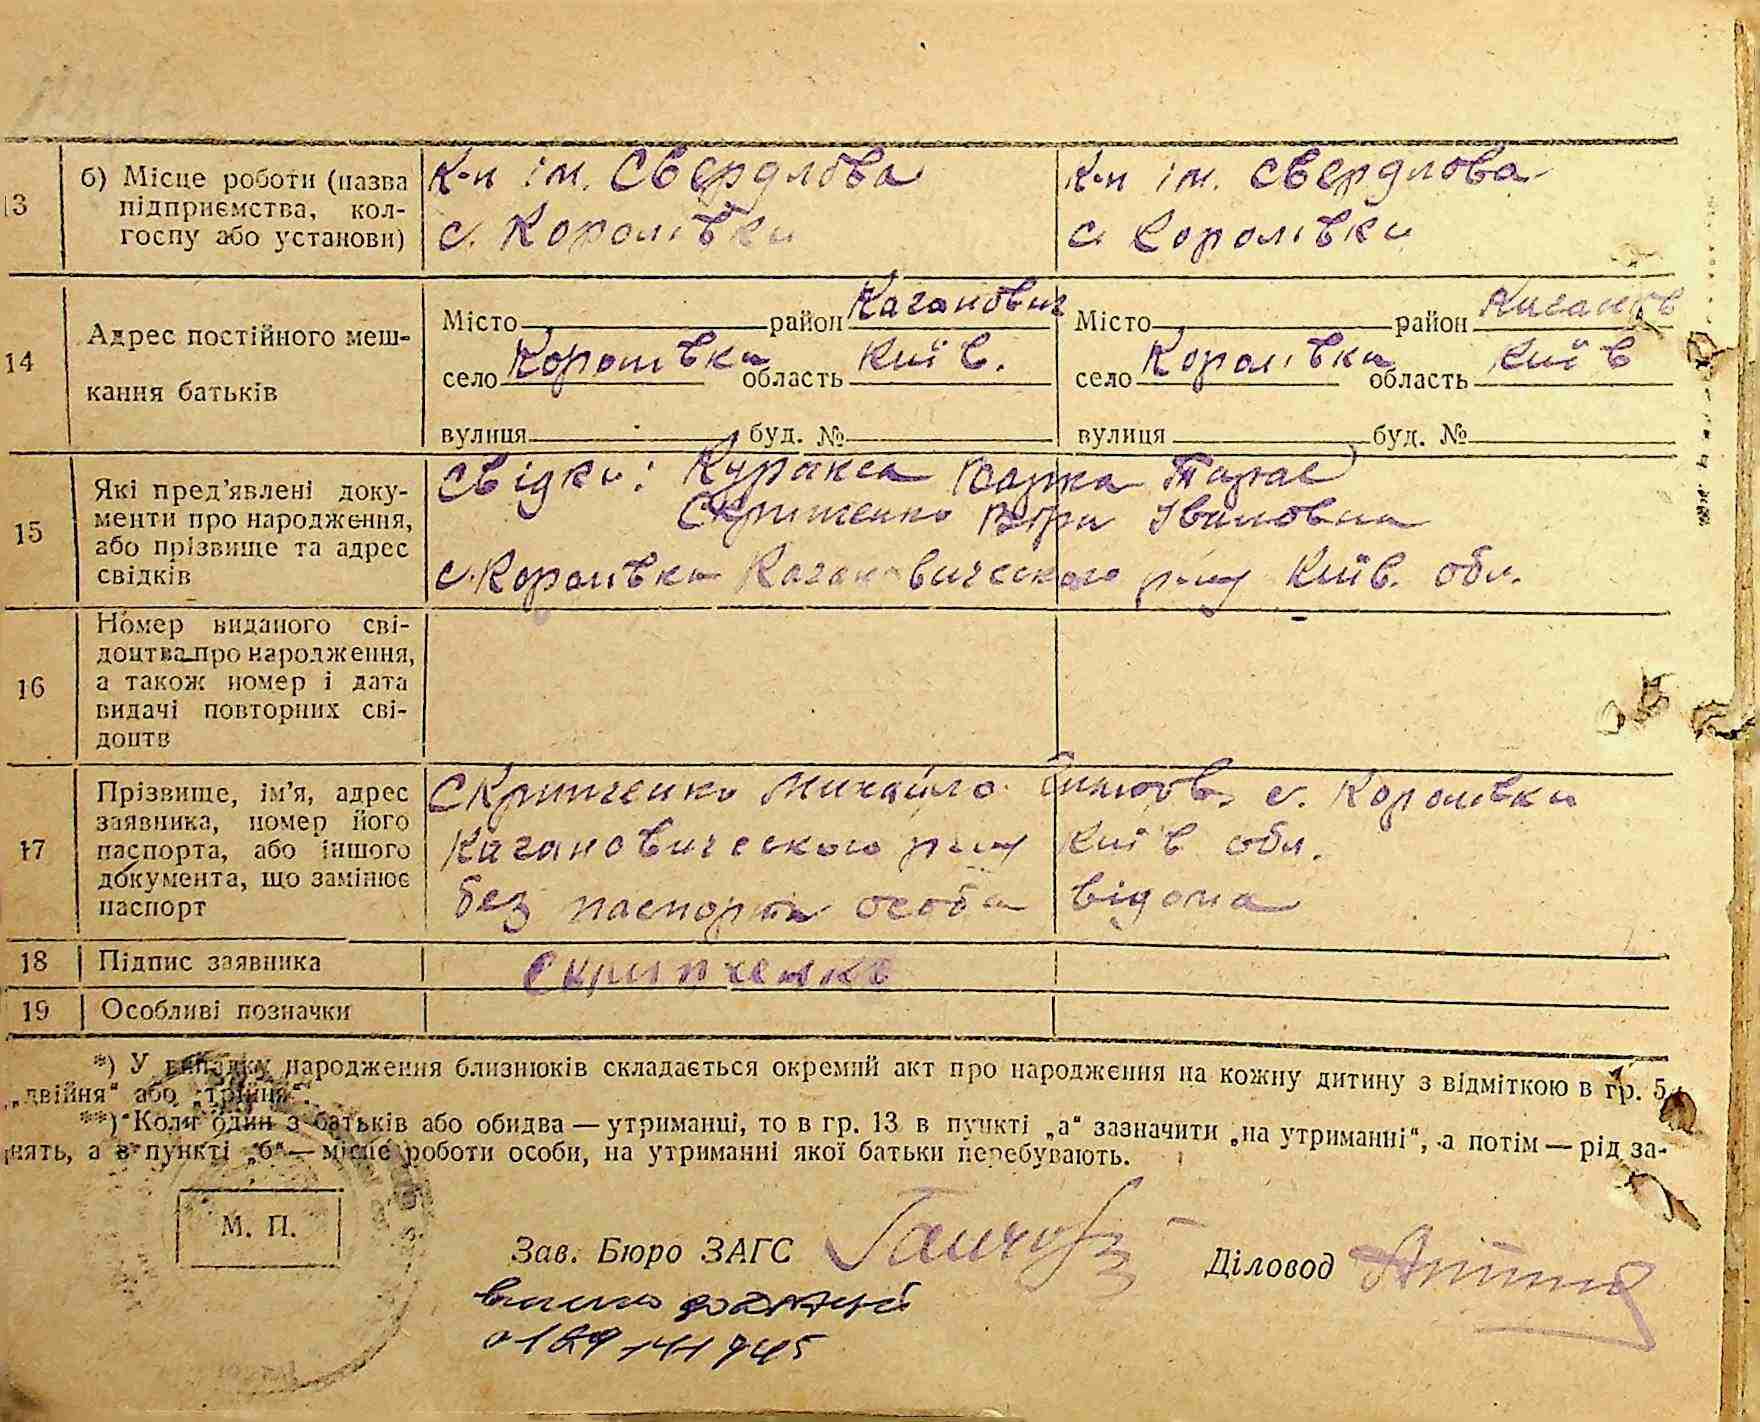 13 б) Місце роботи (назва підприємства, колгоспу або установи)
к-п ім. Свердлова
с. Королівки
к-п ім. Свердлова
с Королівки
14 Адрес постійного мешкання батьків
Місто район Каганович
село Королівка область Київ.
вулиця буд. №
Місто район Каганов
село Королівка область Київ
вулиця буд. №
15 Які пред’явлені документи про народження, або прізвище та адрес свідків
Свідки: Куракса Тарас
Скрипченко Івановна
с. Королівки Кагановического р-ну Київ. обл.
16 Номер виданого свідоцтва про народження, а також номер і дата видачі повторних свідоцтв
17 Прізвище, ім’я, адрес заявника, номер його паспорта, або іншого документа, що замінює паспорт
Скрипченко Михайло с. Королівки
Кагановического р-ну Київ обл.
без паспорта особа відома
18 Підпис заявника
Скрипченко
19 Особливі позначки
*) У випадку народження близнюків складається окремий акт про народження на кожну дитину з відміткою в гр. 5
„двійня“ або „трійня“.
**) Коли один з батьків або обидва — утриманці, то в гр. 13 в пункті „а“ зазначити „на утриманні“, а потім — рід за-
нять, а в пункті „б“ — місце роботи особи, на утриманні якої батьки перебувають.
М. П.
Зав. Бюро ЗАГС
Діловод